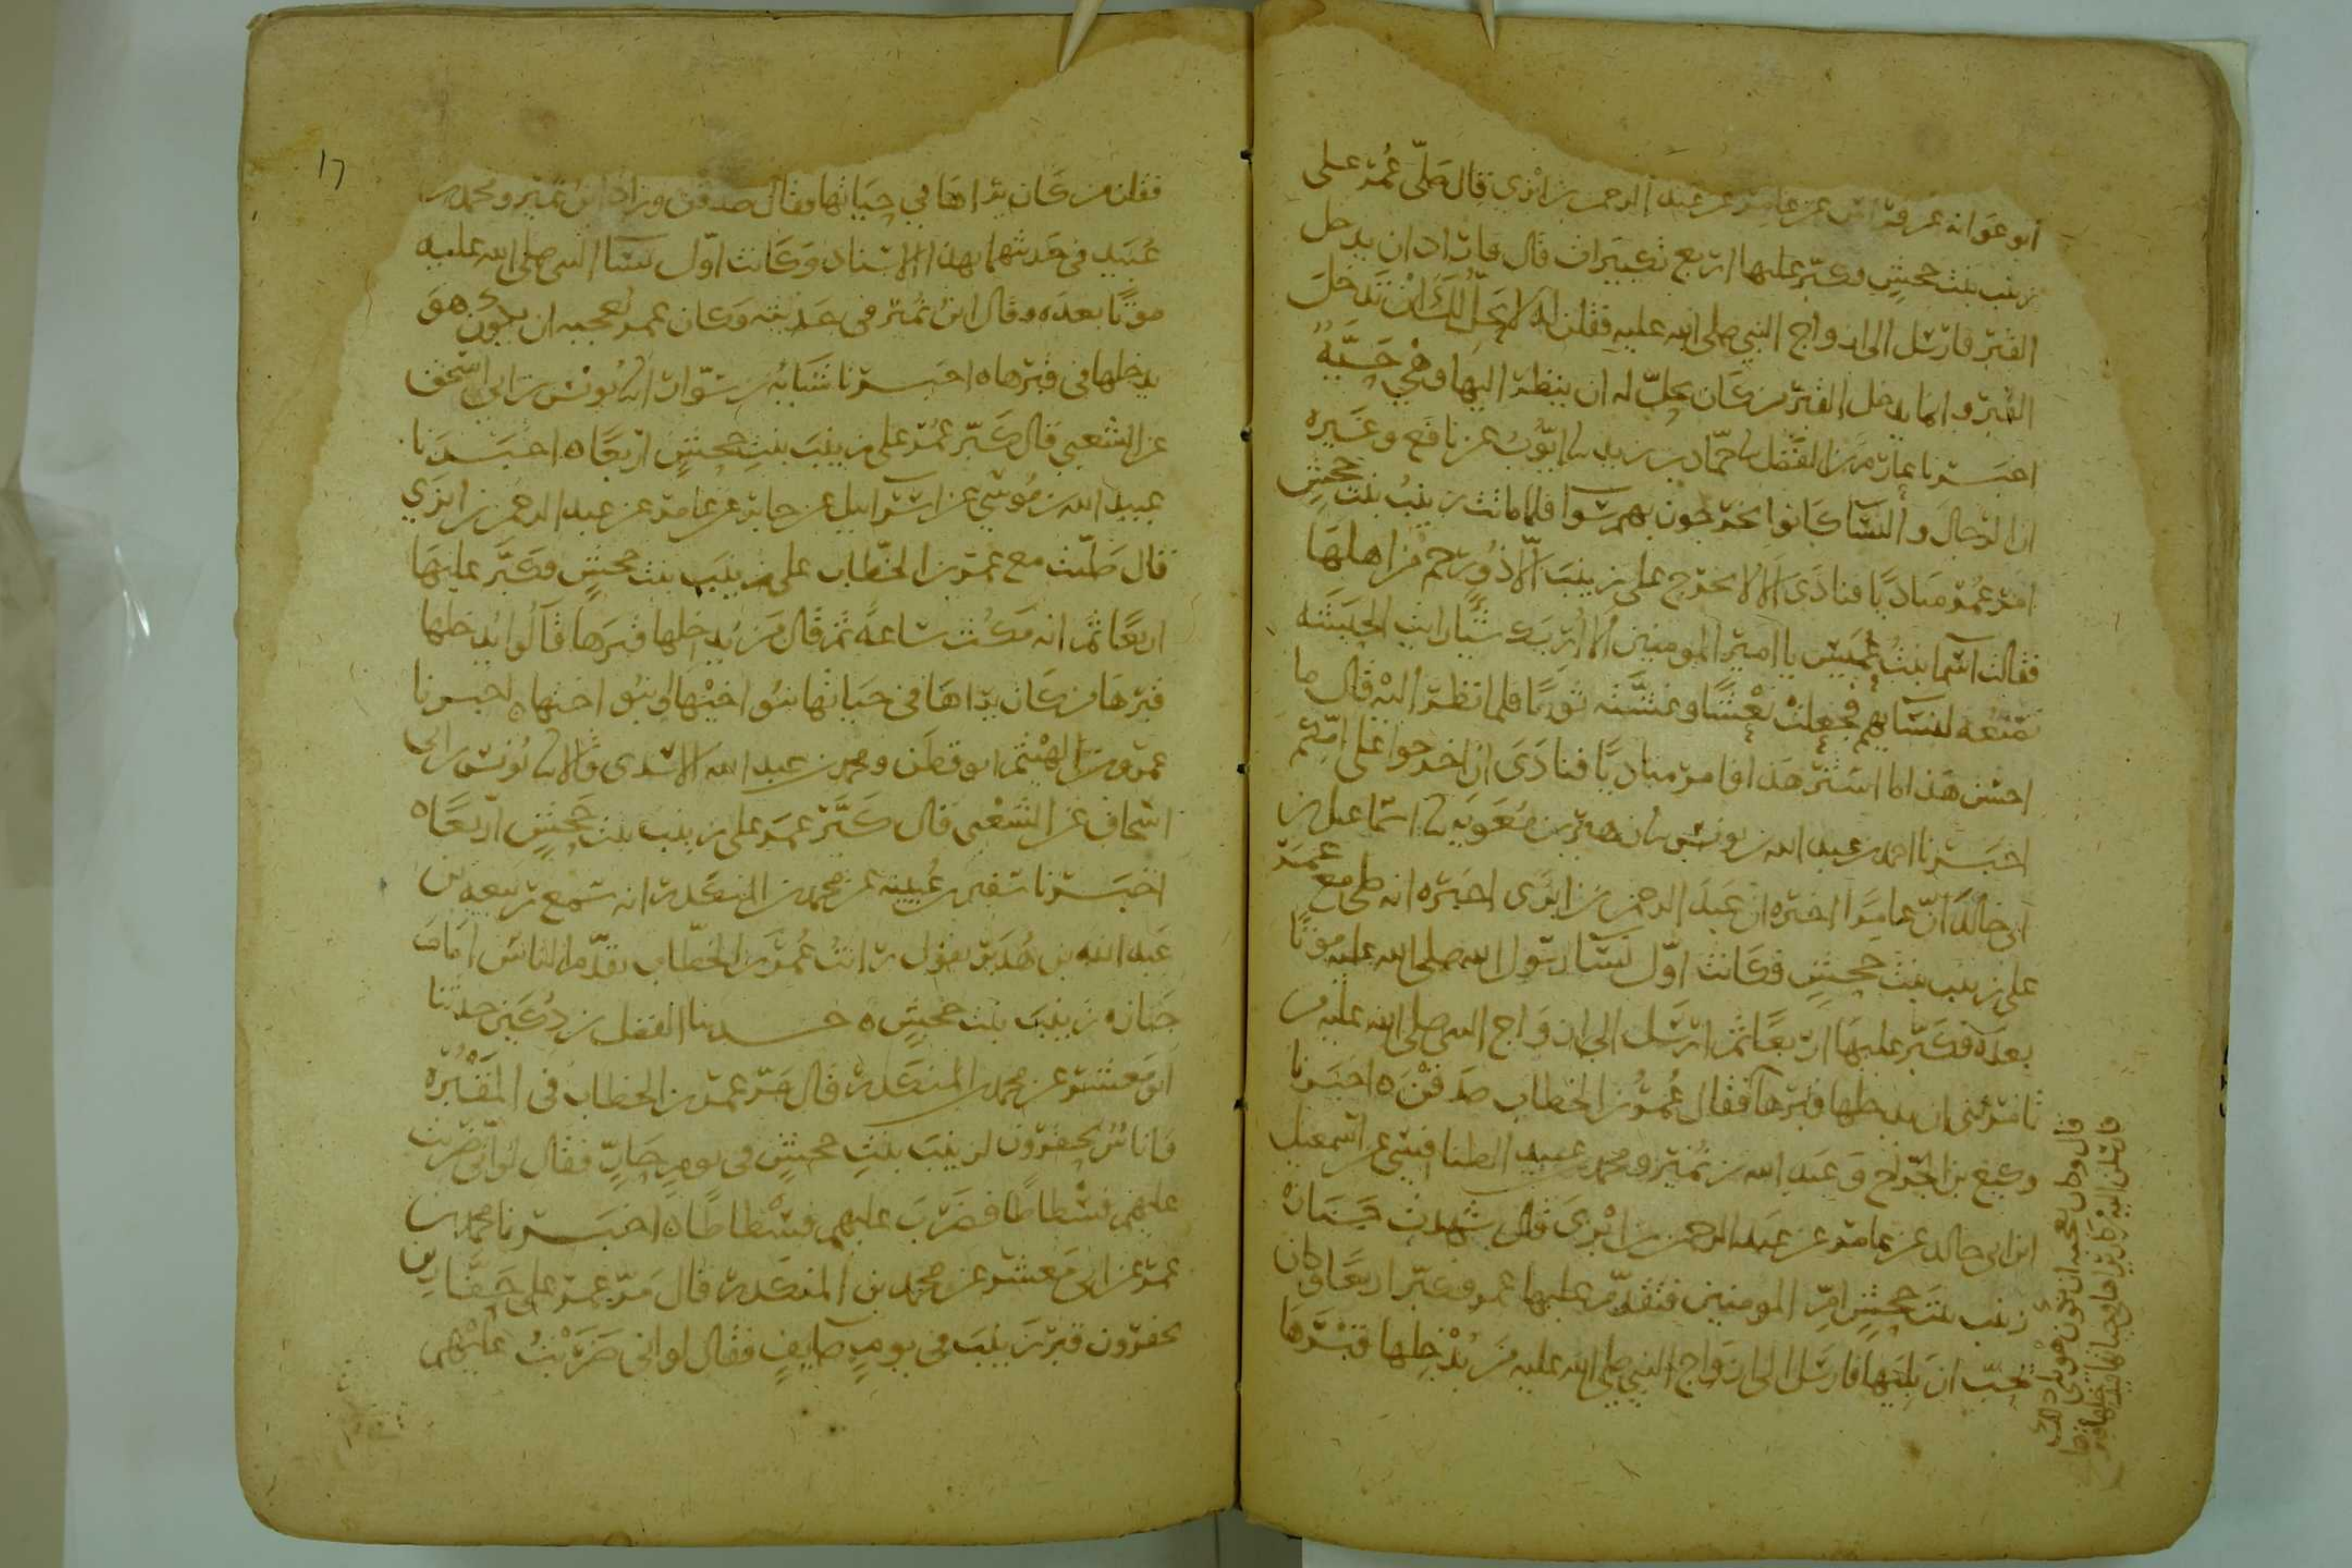 أبو عوانه عن فراس عن عامر عن عبد الرحمن بن ابزي قال صَلّى عُمرُ على
زينب بنت جحشٍ وكبّر عليها اربع تكبيرات قال فاراد ان يدخل
القبر فارسل الى ازواج النبي صلى الله عليه فقلن انه لا يحلّ لك ان تدخل
القبر وانما يدخل القبر من كان يحلّ له ان ينظر اليها وهي حيّةٌ
اخبرنا عارم بن الفضل نا حمّاد بن زيد نا ايّوب عن نافع وغيره
ان الرجال والنسا كانوا يخرجون بهم سوا فلما ماتت زينب بنت جحشٍ
امر عُمرُ مناديًا فنادى الا لا يخرج على زينب الّا ذو رحم من اهلها
فقالت اسما بنت عُميس يا امير المومنين الا اُريك شيًا رايت الحبشه
تصنعه لنسايهم فجعلت نعشًا وغشّته ثوبًا فلما نظر اليه قال ما
احسن هذا ما استر هذا فامر مناديًا فنادى ان اخرجوا على امّكم
اخبرنا احمد بن عبد الله بن يونس نا زهير بن معوية نا اسماعيل بن
ابي خالد انّ عامرًا اخبره ان عبد الرحمن بن ابزى اخبره انه صلى مع عمر
على زينب بنت جحشٍ فكانت اوّل نسا رسول الله صلى الله عليه موتًا
بعده فكبّر عليها اربعًا ثم ارسل الى ازواج النبي صلى الله عليه من
تامرنني ان يدخلها قبرها فقال عُمرُ بن الخطاب صدقن ه اخبرنا
وكيع بن الجرّاح وعبد الله بن نُمير ومحمد بن عبيد الطنافسي عن اسمعيل
ابن ابي خالد عن عامر عن عبد الرحمن بن ابزى قال شهدت جنازه
زينب بنت جحشٍ امّ المومنين فتقدّم عليها عمر فكبّر اربعًا وكان
يحبّ ان يليها فارسل الى ازواج النبي صلى الله عليه من يُدخلها قبرها
17
فقلن من كان يراها في حياتها فقال صدقن وزاد ابن نمير ومحمد بن
عُبيد في حديثهما بهذا الاسناد وكانت اوّل نسا النبي صلى الله عليه
موتًا بعده وقال ابن نُمير في حديثه وكان عمر يعجبه ان يكون هو
يدخلها في قبرها ه اخبرنا شبابة بن سوّار نا يونس بن ابي اسحق
عن الشعبي قال كبّر عُمر على زينب بنت جحشٍ اربعًا ه اخبرنا
عبيد الله بن موسى عن اسراييل عن جابر عن عامر عن عبد الرحمن بن ابزي
قال صلّيت مع عمر بن الخطّاب على زينب بنت جحشٍ فكبّر عليها
اربعًا ثم انه مكث ساعةً ثم قال من يُدخلها قبرها قالوا يُدخلها
قبرها من كان يراها في حياتها بنو اخيها او بنو اختها ه اخبرنا
عمرو بن الهيثم ابو قطن ومحمد بن عبد الله الاسدى قالا نا يونس بن ابي
اسحاق عن الشعبي قال كبّر عمر على زينب بنت جحشٍ اربعًا ه
اخبرنا سفين بن عُيينه عن محمد بن المنكدر انه سمع ربيعه بن
عبد الله بن هُدير يقول رايت عُمر بن الخطّاب يقدّم الناس امام
جنازه زينب بنت جحشٍ ه حدثنا الفضل بن دُكين حدثنا
ابو معشر عن محمد بن المنكدر قال مرّ عمر بن الخطاب في المقبُره
فاناسٌ يحفرون لزينب بنت جحشٍ في يومٍ حارٍّ فقال لو انّي ضربت
عليهم فُسطاطًا فضرب عليهم فسطاطًا ه اخبرنا محمد بن
عمر عن ابي معشر عن محمد بن المنكدر قال مرّ عمر على حفّارين
يحفرون قبر زينب في يومٍ صايفٍ فقال لو اني ضربت عليهم